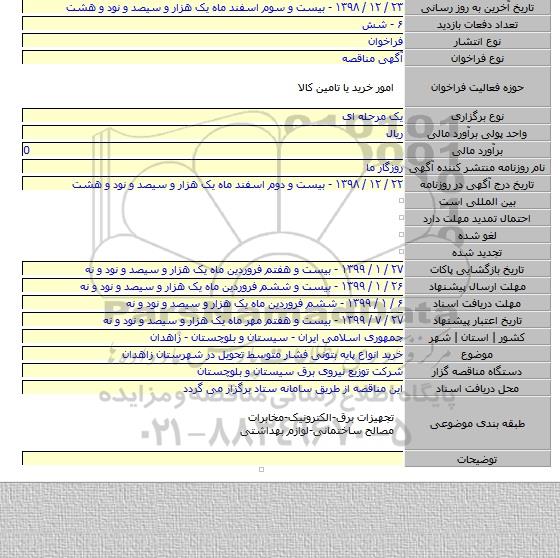 تاریخ آخرین به روز رسانی ۲۳ / ۱۲ / ۱۳۹۸ - بیست و سوم اسفند ماه یک هزار و سیصد و نود و هشت
تعداد دفعات بازدید ۶ - شش
نوع انتشار فراخوان
نوع فراخوان آگهی مناقصه
حوزه فعالیت فراخوان امور خرید با تامین کالا
نوع برگزاری یک مرحله ای
واحد پولی برآورد مالی ریال
برآورد مالی 0
نام روزنامه منتشر کننده آگهی روزگار ما
تاریخ درج آگهی در روزنامه ۲۲ / ۱۲ / ۱۳۹۸ - بیست و دوم اسفند ماه یک هزار و سیصد و نود و هشت
بین المللی است
احتمال تمدید مهلت دارد
لغو شده
تجدید شده
تاریخ بازگشایی پاکات ۲۷ / ۱ / ۱۳۹۹ - بیست و هفتم فروردین ماه یک هزار و سیصد و نود و نه
مهلت ارسال پیشنهاد ۲۶ / ۱ / ۱۳۹۹ - بیست و ششم فروردین ماه یک هزار و سیصد و نود و نه
مهلت دریافت اسناد ۶ / ۱ / ۱۳۹۹ - ششم فروردین ماه یک هزار و سیصد و نود و نه
تاریخ اعتبار پیشنهاد ۲۷ / ۷ / ۱۳۹۹ - بیست و هفتم مهر ماه یک هزار و سیصد و نود و نه
کشور | استان | شهر جمهوری اسلامی ایران - سیستان و بلوچستان - زاهدان
موضوع خرید انواع پایه بتونی فشار متوسط تحویل در شهرستان زاهدان
دستگاه مناقصه گزار شرکت توزیع نیروی برق سیستان و بلوچستان
محل دریافت اسناد این مناقصه از طریق سامانه ستاد برگزار می گردد
طبقه بندی موضوعی تجهیزات برق-الکترونیک-مخابرات
مصالح ساختمانی-لوازم بهداشتی
توضیحات
پایگاه اطلاع رسانی مناقصه و مزایده
۰۲۱-۸۸۳۴۹۶۷۰-۵